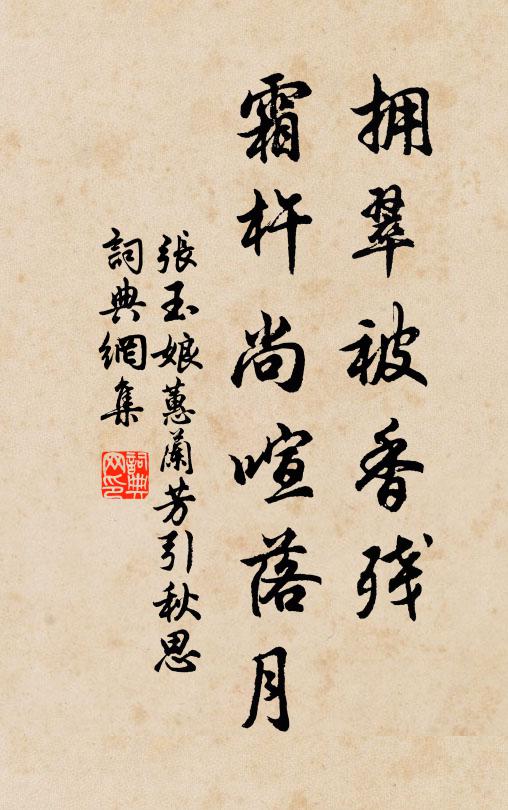 拥翠被香残
霜杵尚喧落月
張玉娘蕙蘭芳引秋思
詞典網集
詞典网印